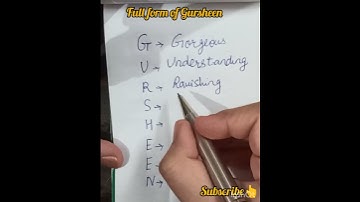 Full form of Gursheen
G → Gorgeous
U → Understanding
R → Ravishing
S →
H →
E →
E →
N →
Subscribe👆